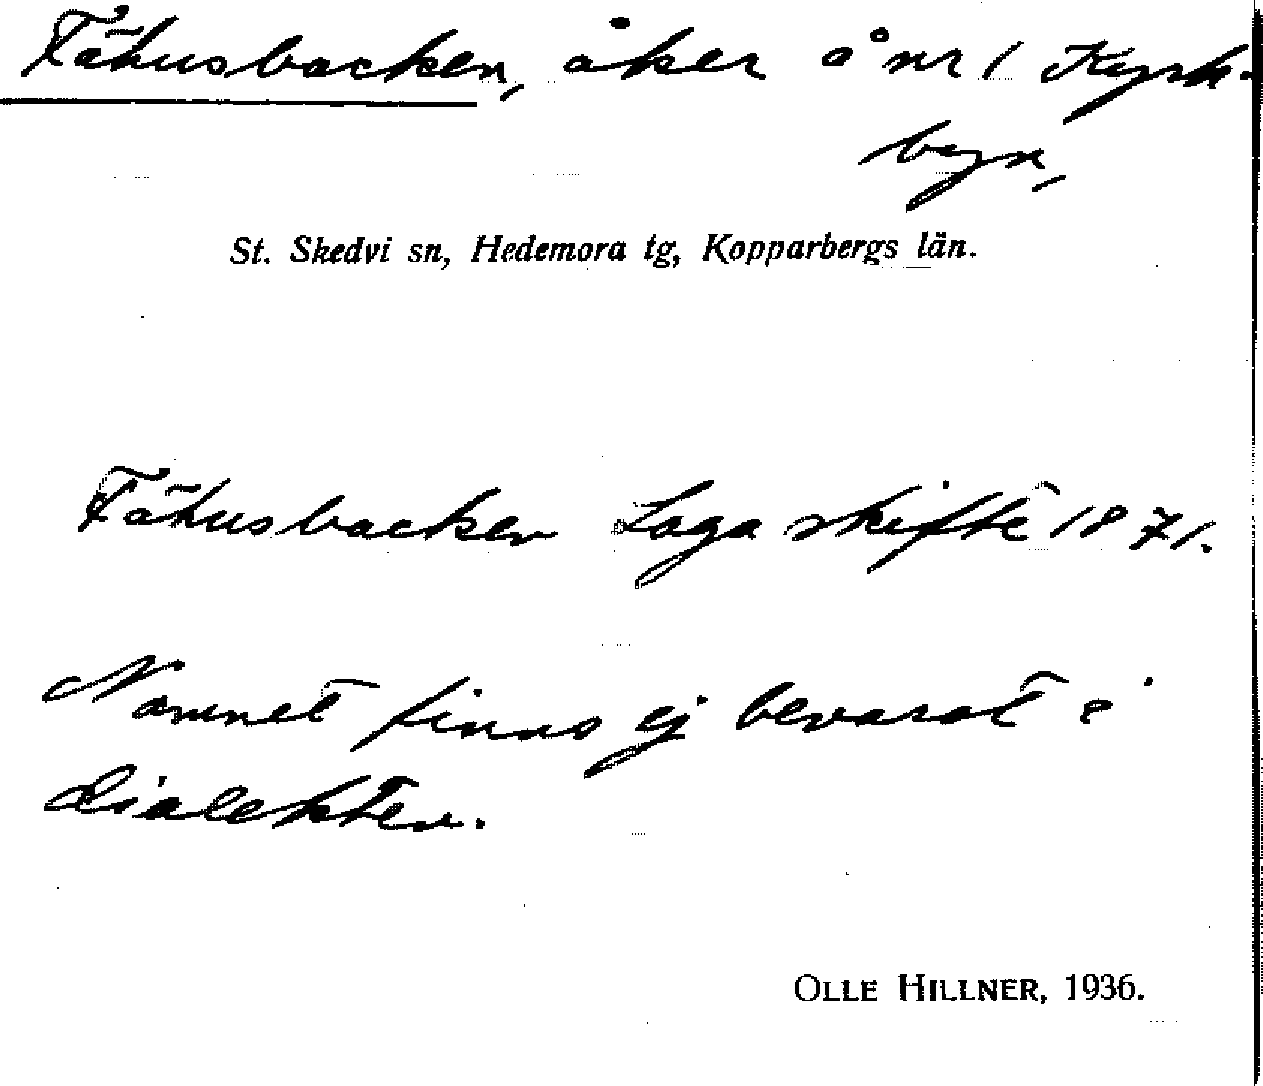 Fähusbacken, åker å nr 1 Kyrk-
byn,
St. Skedvi sn, Hedemora tg, Kopparbergs län.
Fähusbacken Laga skifte 1871.
Namnet finns ej bevarat i
dialekten.
OLLE HILLNER, 1936.